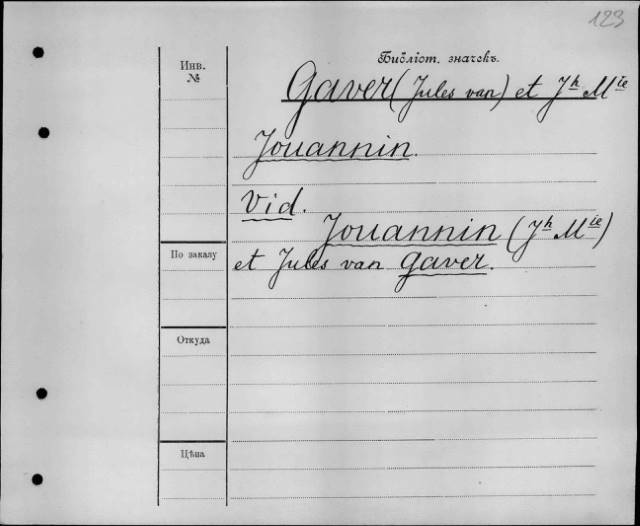 123
Библіот. значекъ.
Инв.
№
Gaver (Jules van) et Jh Mie
Jouannin.
Vid.
Jouannin (Jh Mie)
По заказу
et Jules van Gaver.
Откуда
Цѣна